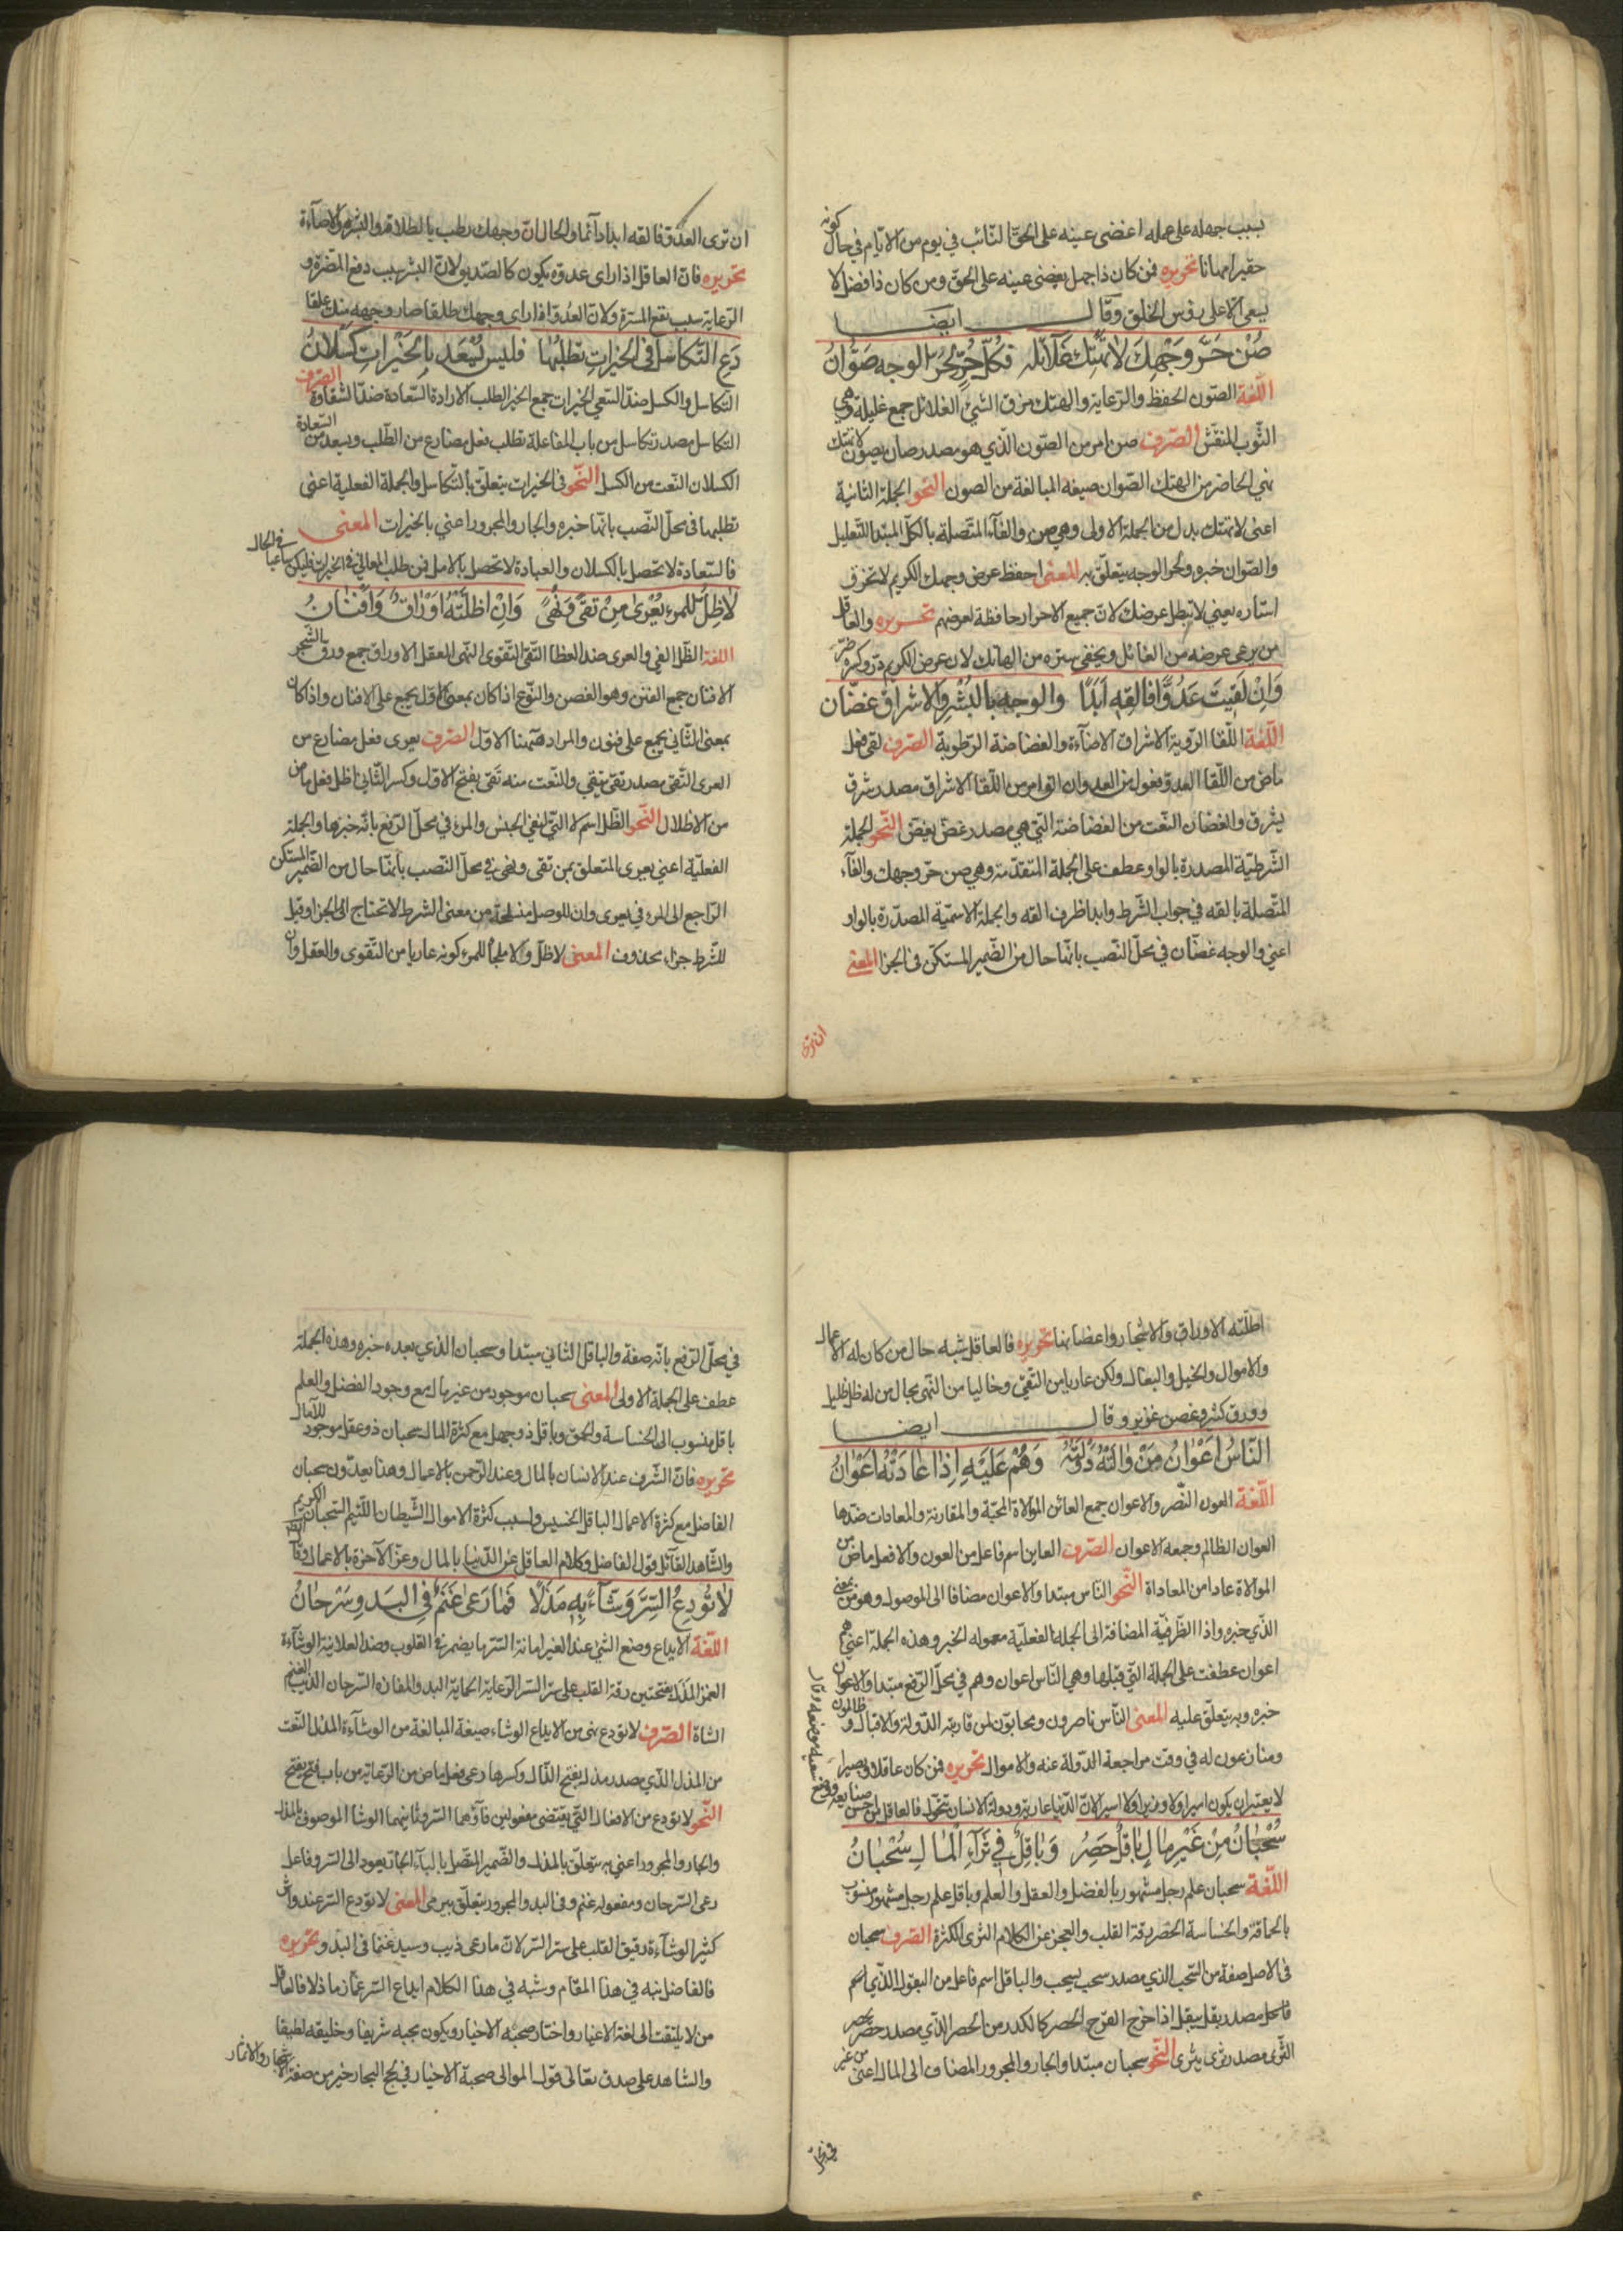 بسبب جهله على عمله اغضى عينه على الحق النائب في يوم من الايام في حال كونه
حقيرا مهانا تحريره فمن كان ذا جهل يغضى عينه على الحق ومن كان ذا فضل لا
يسعى الا على رؤس الخلق وقال ايضا
صُنْ حَرَّ وَجْهِكَ لا تَهْتِكْ غَلَائِلَه فكلّ حُرٍّ لِحُرّ الوجه صَوَّانُ
اللّغة الصّون الحفظ والرّعاية والهتك مزق الشئ الغلائل جمع غليلة وهي
الثّوب المنقّش الصّرف صن امر من الصّون الّذي هو مصدر صان يصون لا تهتك
نهي الحاضر من الهتك الصّوان صيغه المبالغة من الصون النّحو الجملة الثانية
اعنى لا تهتك بدل من الجملة الاولى وهي صن والفاء المتّصلة بالكلّ المبتدا للتعليل
والصّوان خبره ولحرّ الوجه يتعلّق به المعنى احفظ عرض وجهك الكريم لا تخرق
استاره يعني لا تبطل عرضك لانّ جميع الاحرار حافظة لعرضهم تحريره والعاقل
من يرعى عرضه من الغائل ويخفى ستره من الهاتك لان عرض الكريم
وَاِنْ لَقِيتَ عَدُوًّا فَالقِهِ اَبَدًا والوجه بالبُشْرِ والاشراق غضّان
اللّغة اللّقا الرّوية الاشراق الاضآءة والغضاضة الرّطوبة الصّرف لقى فعل
ماض من اللّقا العدوّ فعول من العدوان القِ امر من اللّقا الاشراق مصدر شرق
يشرق والغضان النّعت من الغضاضة التي هي مصدر غضّ يغضّ النّحو الجملة
الشّرطيّة المصدرة بالواو عطف على الجملة المتقدّمة وهي صن حرّ وجهك والفآء
المتّصلة بالقه في جواب الشّرط وابدا ظرف القه والجملة الاسميّة المصدّرة بالواو
اعني والوجه غضّان في محلّ النّصب بانّها حال من الضّمير المستكنّ في الجزا المعنى
ان ترى
ان ترى العدوّ فالقه ابدا دآئما والحال انّ وجهك رطب بالطلاقة والبشر والاضآءة
تحريره فانّ العاقل اذا راى عدوّه يكون كالصّديق لانّ البشر سبب دفع المضرّة و
الرّعاية سبب نفع المسرّة ولانّ العدوّ اذا راى وجهك طلقا صار وجهه منك علقا
دَعِ التَّكاسُلَ في الخيراتِ تطلبُها فليس يُسْعَد بِالخَيْراتِ كَسْلَانُ
التّكاسل والكسل ضدّ السّعي الخيرات جمع الخير الطلب الارادة السّعادة ضدّ الشّقاوة الصّرف
التكاسل مصدر تكاسل من باب المفاعلة تطلب فعل مضارع من الطّلب ويسعد من السّعادة
الكسلان النّعت من الكسل النّحو في الخيرات يتعلّق بالتّكاسل والجملة الفعلية اعنى
تطلبها في محلّ النّصب بانّها خبره والجار والمجرور اعني بالخيرات المعنى
فالسّعادة لا تحصل بالكسلان والعبادة لا تحصل بالامل فمن طلب المعالي في الخيرات فليكن ساعيا في الحال
لا ظِلَّ لِلمرءِ يُعْرىٰ مِنْ تُقىً وَنُهىً وَاِنْ اظلّتْهُ اَوْراقٌ وَاَفْنٰانُ
اللغة الظّلّ الفي والعرى ضدّ الغطا التّقى التّقوى النّهى العقل الاوراق جمع ورق الشّجر
الافنان جمع الفنن وهو الغصن والنّوع اذا كان بمعنى الاوّل يجمع على الافنان واذا كان
بمعنى الثّاني يجمع على فنون والمراد هٓهنا الاوّل الصّرف يعرى فعل مضارع من
العرى التّقى مصدر تقى يتقي والنّعت منه تَقي بفتح الاوّل وكسر الثّاني اظل فعل ماض
من الاظلال النّحو الظّل اسم لا الّتي لنفي الجنس والمرء في محلّ الرّفع بانّه خبرها والجملة
الفعليّة اعني يعرى المتعلق بمن تقى ونهى في محلّ النّصب بانّها حال من الضّمير المستكن
الرّاجع الى المرء في يعرى وان للوصل منسلخة من معنى الشرط لا تحتاج الى الجزا وقيل
للشّرط جزاؤه محذوف المعنى لا ظلّ ولا ملجأ للمرء كونه عاريا من التّقوى والعقل وان
اظلّته الاوراق والاشجار واغصانها تحريره فالعاقل شبه حال من كان له الاعمال
والاموال والخيل والبغال ولكن عاريا من التّقى وخاليا من النّهى بحال من له ظلّ ظليل
وورق كثير وغصن غزير وقال ايضا
النّاسُ اَعْوانُ مَنْ وٰالَتْهُ دَوْلَتُهُ وَهُمْ عَلَيْهِ اِذٰا عٰادَتْهُ اَعْوٰانُ
اللّغة العون النّصر والاعوان جمع العائن المؤالاة المحبّة والمقارنة والمعادات ضدّها
العوان الظالم وجمعه الاعوان الصّرف العاين اسم فاعل من العون والا فعل ماض من
الموالاة عادا من المعاداة النّحو النّاس مبتدا والاعوان مضافا الى الموصول وهو من بمعنى
الذّي خبره واذا الظّرفيّة المضافة الى الجملة الفعليّة معموله الخبر وهذه الجملة اعني هم
اعوان عطفت على الجملة الّتي قبلها وهي النّاس اعوان وهم في محلّ الرّفع مبتدا والاعوان
خبره وبه يتعلّق عليه المعنى النّاس ناصرون ومحابّون لمن قاربته الدّولة والاقبال وظالمون
ومنازعون له في وقت مراجعة الدّولة عنه والاموال تحريره فمن كان عاقلا وبصيرا
لا يعتبر ان يكون اميرا ولا وزيرا ولا اسيرا لانّ الدّنيا عارية ودولة الانسان تتحوّل فالعاقل من
سَحْبٰانُ مِنْ غَيْرِ مٰالٍ بٰاقِلٌ حَصِرُ وَبٰاقِلٌ فِي ثَرٰآءِ الْمٰالِ سَحْبٰانُ
اللّغة سحبان علم رجل مشهور بالفضل والعقل والعلم وباقل علم رجل مشهور منسوب
بالحماقة والخساسة الحصر دقة القلب والعجز عن الكلام الثرى الكثرة الصّرف سحبان
في الاصل صفة من السّحب الذي مصدر سحب يسحب والباقل اسم فاعل من البقول الّذي اسم
فاعل مصدر بقل يبقل اذا خرج الحصر كالكدر من الحصر الّذي مصدر حصر يحصر
الثّرى مصدر ثرى يثرى النّحو سحبان مبتدا والجار والمجرور المضاف الى المال اعنى من غير
في محلّ
في محلّ الرّفع بانّه صفة والباقل الثاني مبتدا وسحبان الذي بعده خبره وهذه الجملة
عطف على الجملة الاولى المعنى سحبان موجود من غير مال مع وجود الفضل والعلم
باقل منسوب الى الخساسة والحمق وباقل ذو جهل مع كثرة المال سحبان ذو عقل موجود للآمال
تحريره فانّ الشّرف عند الانسان بالمال وعند الرّحمن بالاعمال وهذا يعدّون سحبان
الفاضل مع كثرة الاعمال الباقل الخسيس ولسبب كثرة الاموال الشّيطان اللّئيم السّحبان الكريم
والشّاهد القآئل قول الفاضل وكلام العاقل عزّ الدّنيا بالمال وعزّ الآخرة بالاعمال وقال
لٰا تُودِعِ السِّرَّ وَشّآءً بِهِ مَذِلًا فَمٰا رَعىٰ غَنَمٌ في البَدوِ سَرْحٰانُ
اللّغة الايداع وضع الشئ عند الغير امانة السّر ما يضمر في القلوب وضدّ العلانية الوشآءة
الغمز المذل بفتحتين رقة القلب على ستر السّر الرّعاية الحماية البدو المفازه السّرحان الذّيب الغنم
الشاة الصّرف لا تودع نهى من الايداع الوشاء صيغة المبالغة من الوشآءة المذل النّعت
من المذل الّذي مصدر مذل بفتح الذّال وكسرها رعى فعل ماض من الرّعاية من باب فتح يفتح
النّحو لا تودع من الافعال الّتي يقتضى مفعولين فاوّلهما السّر وثانيهما الوشا الموصوف بالمذل
والجار والمجرور اعني به يتعلّق بالمذل والضّمير المتّصل بالبآء الجارّ يعود الى السّر وفاعل
رعى السّرحان ومفعوله غنم وفي البدو الجار والمجرور يتعلّق برعى المعنى لا تودع السّر عند واش
كثير الوشآءة رقيق القلب على ستر السّر لانّ ما رعى ذيب وسيد غنما في البدو تحريره
فالفاضل ينبه في هذا المقام وشبه في هذا الكلام ايداع السّر غمّازا مذلا فالعاقل
من لا يلتفت الى لغة الاغيار واختار صحبة الاخيار ويكون محبه شريفا وخليقه لطيفا
والشاهد على صدق مقالى قول الموالى صحبة الاخيار في لج البحار خير من صفة الاشجار والاثمار